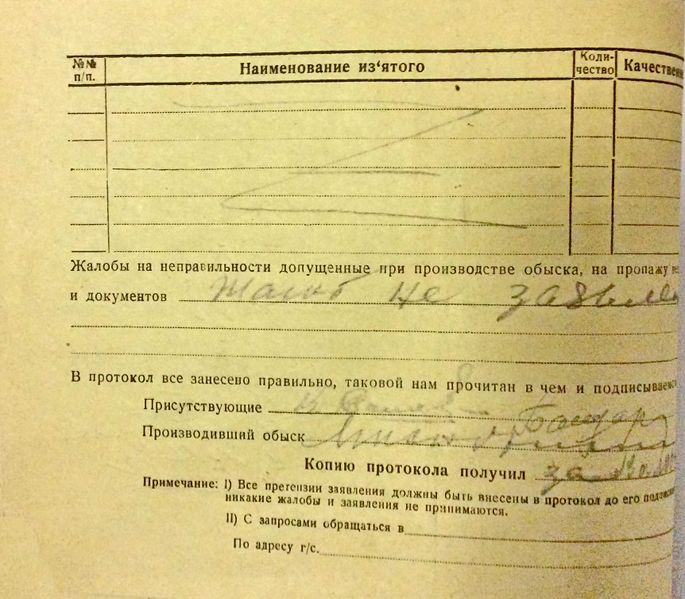 №№ п/п. Наименование из‘ятого Коли-чество Качествен
Жалобы на неправильности допущенные при производстве обыска, на пропажу ве
и документов Жалоб не заявле
В протокол все занесено правильно, таковой нам прочитан в чем и подписываемся
Присутствующие
Производивший обыск
Копию протокола получил за
Примечание: I) Все претензии заявления должны быть внесены в протокол до его подписан
никакие жалобы и заявления не принимаются.
II) С запросами обращаться в
По адресу г/с.